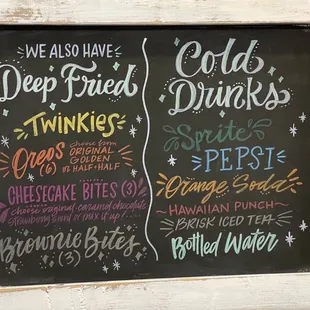 WE ALSO HAVE
Deep Fried
TWINKIES
Oreos (6) choose from ORIGINAL GOLDEN or HALF + HALF
CHEESECAKE BITES (3)
choose original, caramel, chocolate
strawberry and or mix it up
Brownie Bites
(3)
Cold
Drinks
Sprite
PEPSI
Orange Soda
~HAWAIIAN PUNCH~
BRISK ICED TEA
Bottled Water